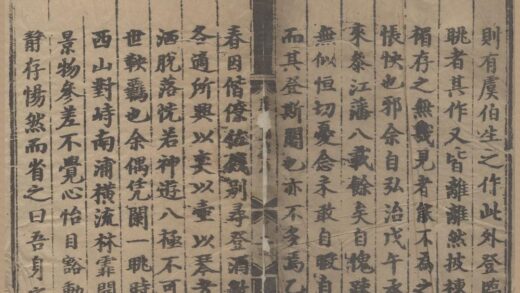 則有虞伯生之作此外登臨
眺者其作又皆離離然披榛
榻存之無幾見者能不為之
悵怏也邪余自弘治戊午
來參江藩八載餘矣自愧疎
無似恒切憂念未敢自暇自
而其登斯閣也亦不多焉乙
春因偕僚佐餞別尋登酒數
各適所興以奕以壺以琴者
洒脫落恍若神遊八極不可
世軼羈也余偶凭闌一眺時
西山對峙南浦橫流林霏開
景物參差不覺心怡目豁動
靜存惕然而省之曰吾身